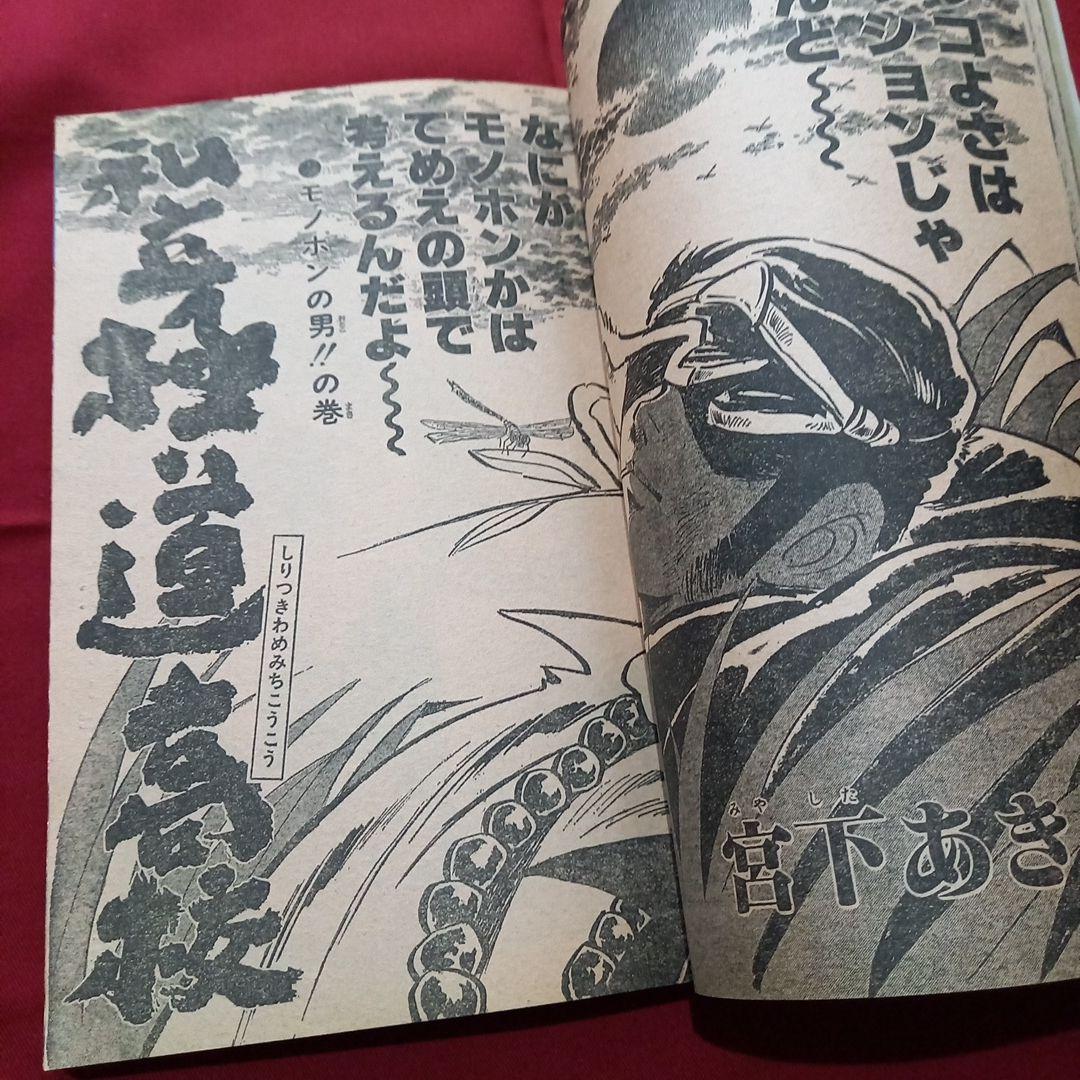 コよさは
ションじゃ
んど〜〜
なにが
モノホンかは
てめえの頭で
考えるんだよ〜〜
●モノホンの男!!の巻
おとこ
まき
私立極道高校
しりつきわめみちこうこう
みやした
宮下あき